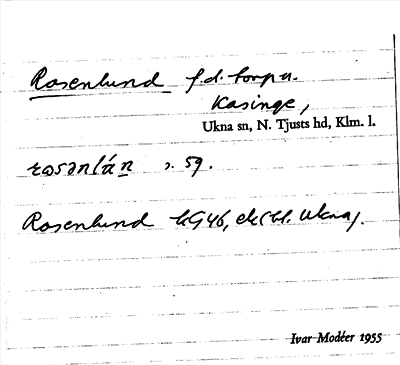 Rosenlund f.d. torp u.
Kasinge,
Ukna sn, N. Tjusts hd, Klm. l.
s. 59.
Rosenlund GK 46, ek (bl. Ukna).
Ivar Modéer 1955